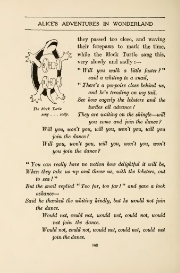 ALICE'S ADVENTURES IN WONDERLAND
they passed too close, and waving
their forepaws to mark the time,
while the Mock Turtle sang this,
very slowly and sadly:—
" Will you walk a little faster?"
said a whiting to a snail,
" There's a porpoise close behind us,
and he's treading on my tail.
See how eagerly the lobsters and the
turtles all advance!
They are waiting on the shingle—will
you come and join the dance?
The Mock Turtle
sang . . . sadly.
Will you, won't you, will you, won't you, will you
join the dance?
Will you, won't you, will you, won't you, won't
you join the dance?
" You can really have no notion how delightful it will be,
When they take us up and throw us, with the lobsters, out
to sea!"
But the snail replied " Too far, too far!" and gave a look
askance—
Said he thanked the whiting kindly, but he would not join
the dance.
Would not, could not, would not, could not, would
not join the dance.
Would not, could not, would not, could not, could not
join the dance.